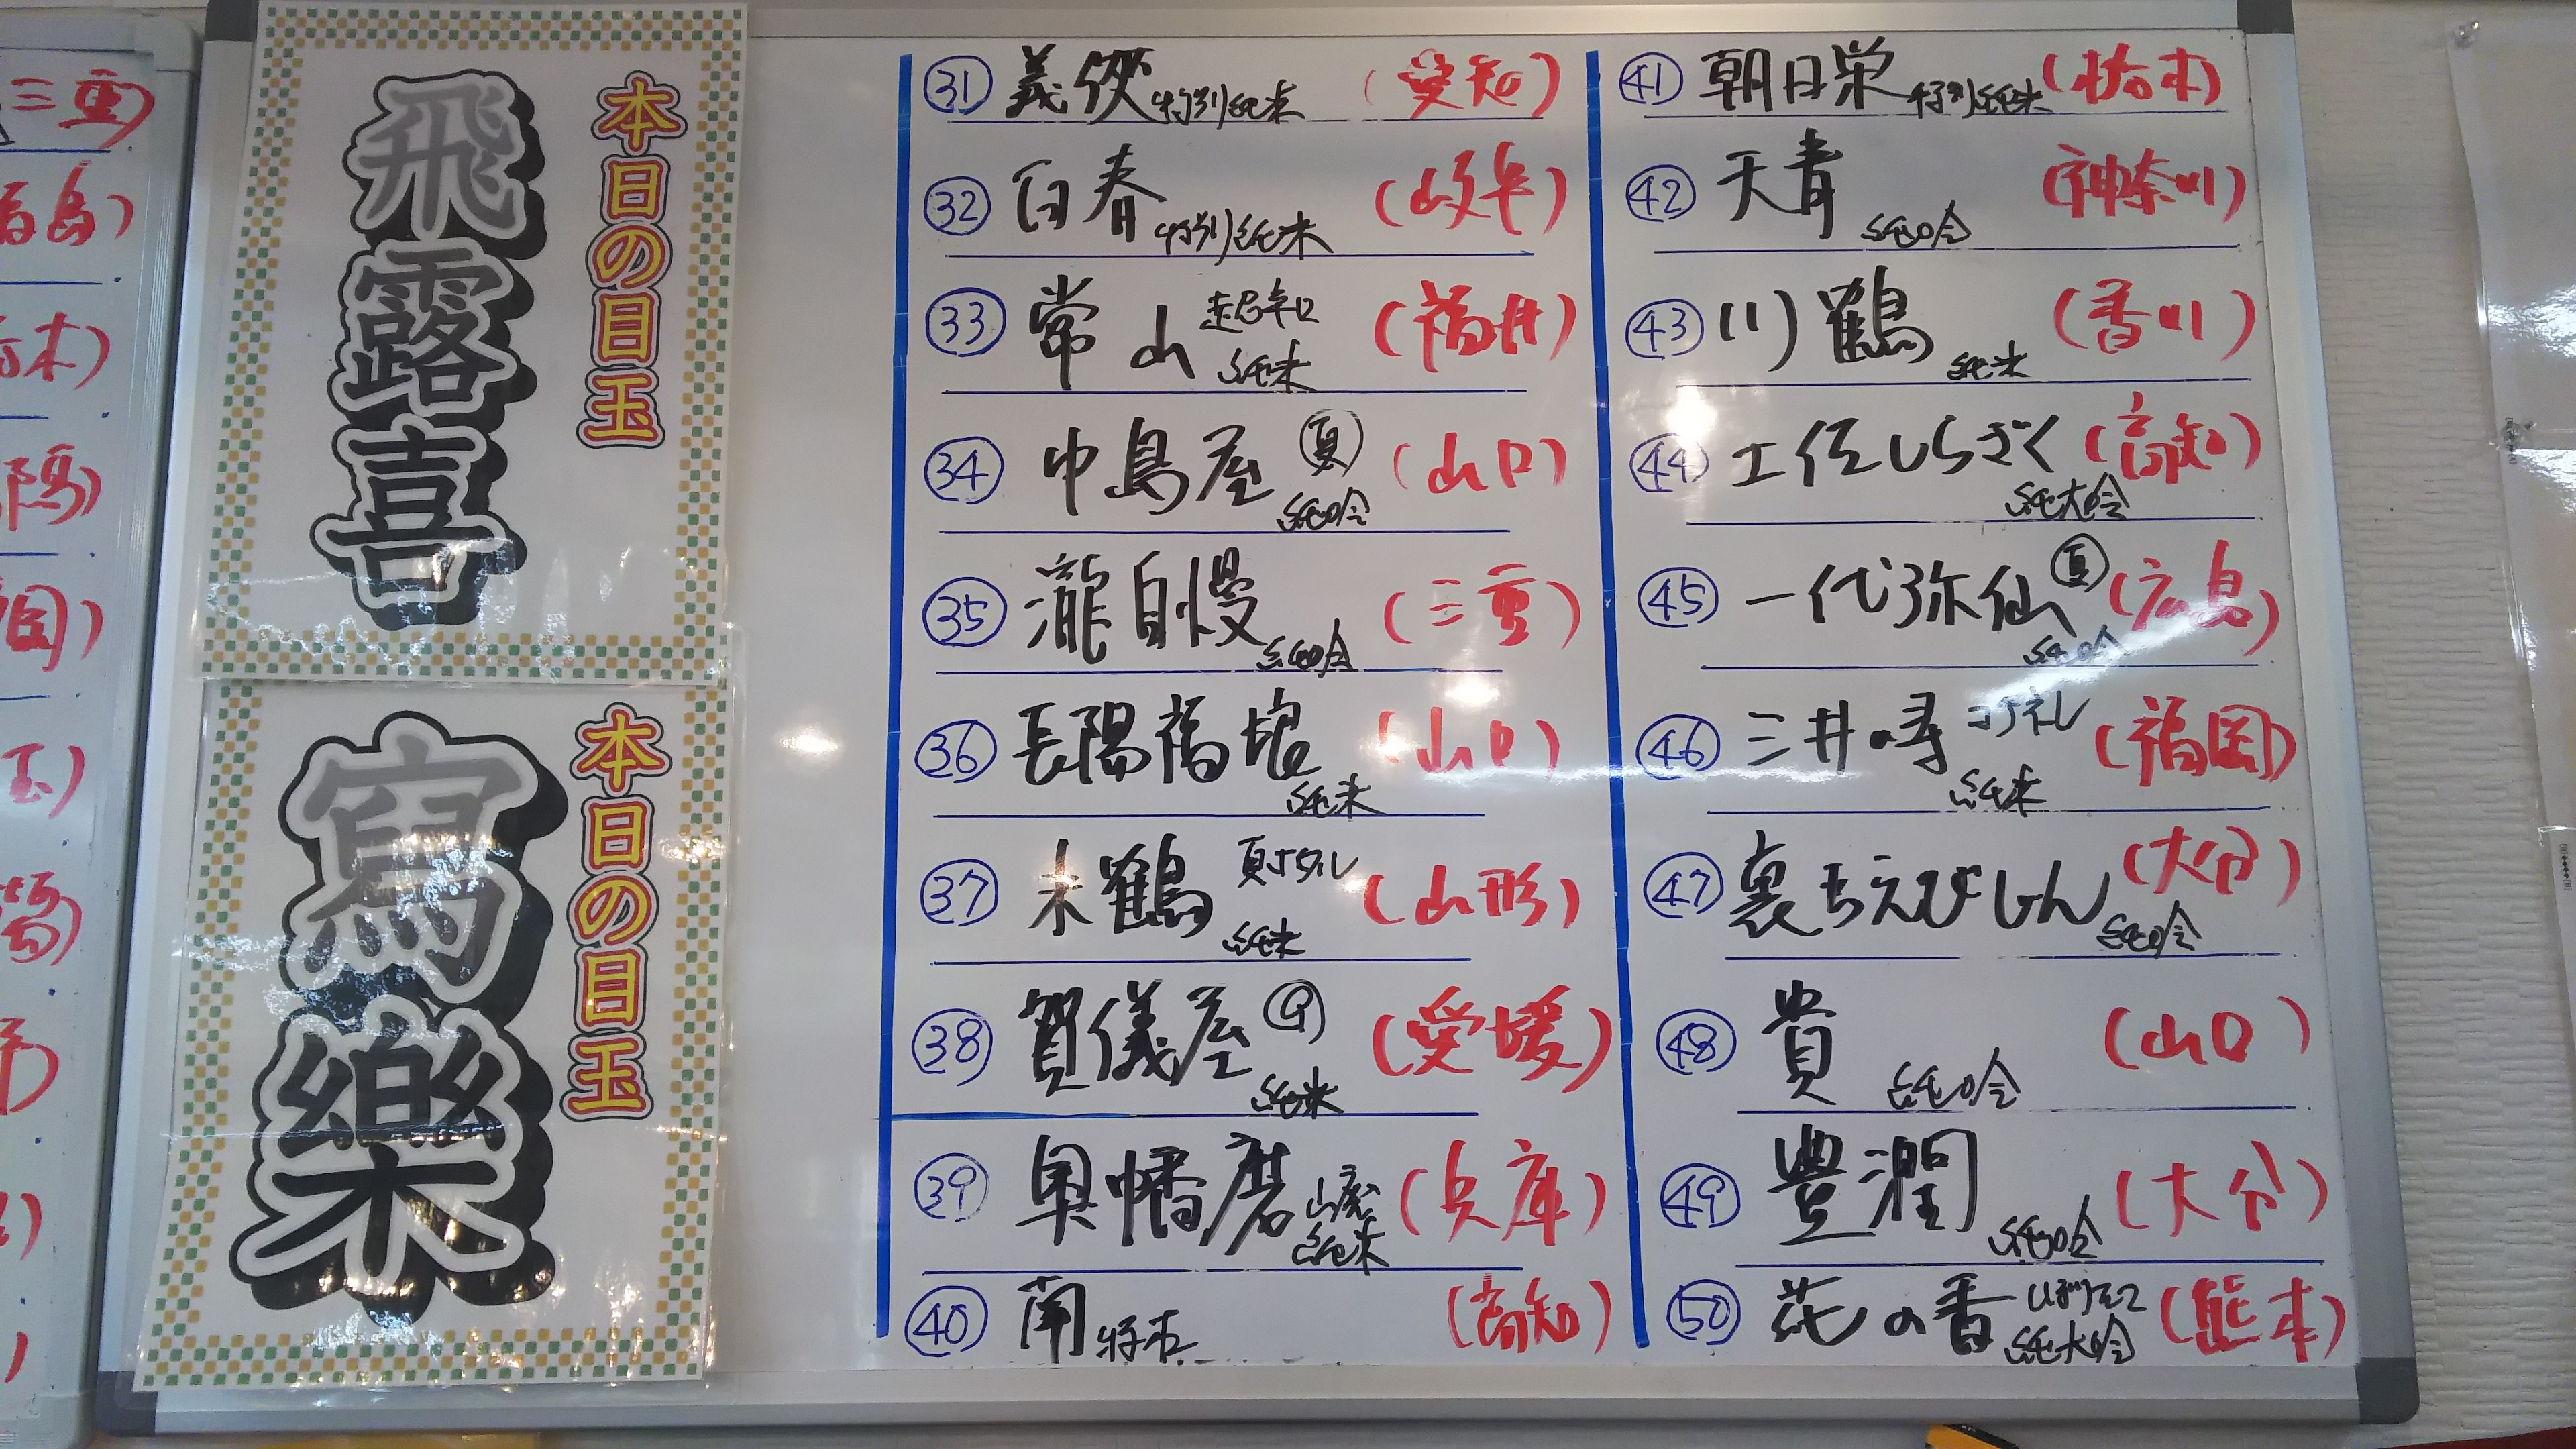 三重)
福島)
栃木)
岡)
玉)
本日の目玉
飛露喜
本日の目玉
寫樂
31 義侠 特別純米 (愛知)
32 百春 特別純米 (岐阜)
33 常山 超辛口 純米 (福井)
34 中島屋 夏 純吟 (山口)
35 瀧自慢 純吟 (三重)
36 長陽福娘 純米 (山口)
37 米鶴 夏 純米 (山形)
38 賀儀屋 純米 (愛媛)
39 奥幡磨 山廃 純米 (兵庫)
40 南 特本 (高知)
41 朝日栄 特別純米 (栃木)
42 天青 純吟 (神奈川)
43 川鶴 純米 (香川)
44 土佐しらぎく 純大吟 (高知)
45 一代弥仙 夏 純吟 (広島)
46 三井の寿 純米 (福岡)
47 裏ちえびじん 純吟 (大分)
48 貴 純吟 (山口)
49 豊潤 純吟 (大分)
50 花の香 純大吟 (熊本)